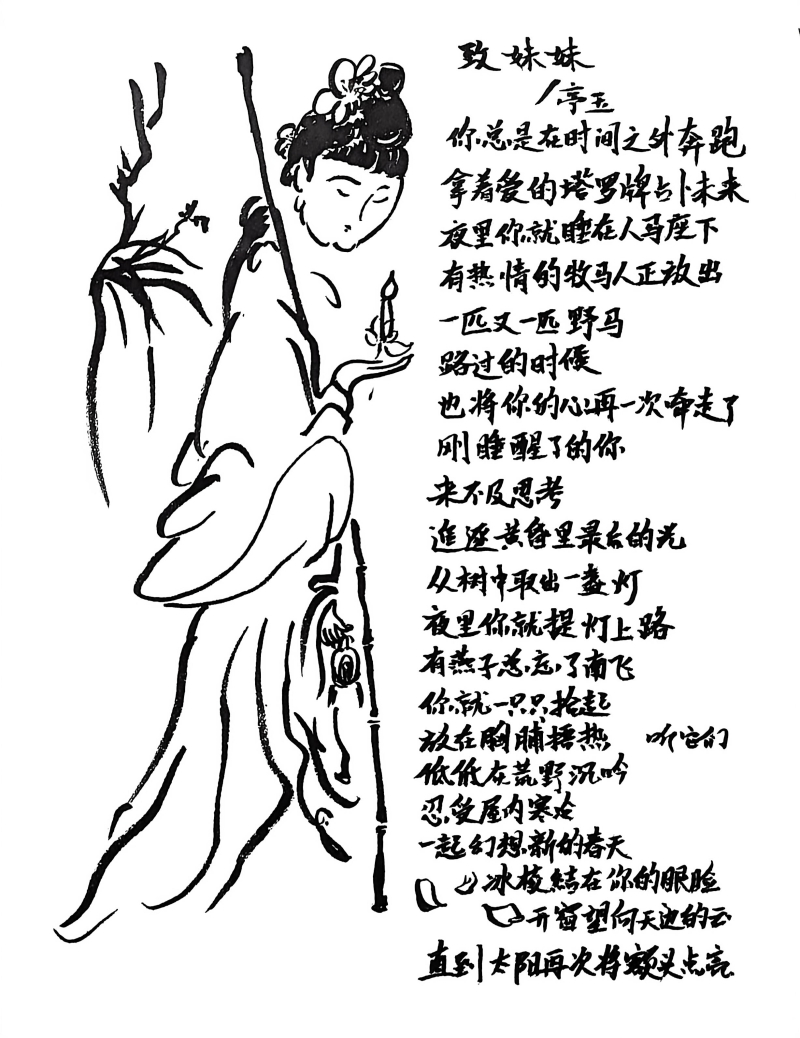 致妹妹
/亭玉
你总是在时间之外奔跑
拿着爱的塔罗牌占卜未来
夜里你就睡在人马座下
有热情的牧马人正放出
一匹又一匹野马
路过的时候
也将你的心再一次牵走了
刚睡醒了的你
来不及思考
追逐黄昏里最后的光
从树中取出一盏灯
夜里你就提灯上路
有燕子总忘了南飞
你就一只只拾起
放在胸脯捂热 听它们
低低在荒野沉吟
忍受屋内寒冷
一起幻想新的春天
冰棱结在你的眼睑
开窗望向天边的云
直到太阳再次将额头点亮